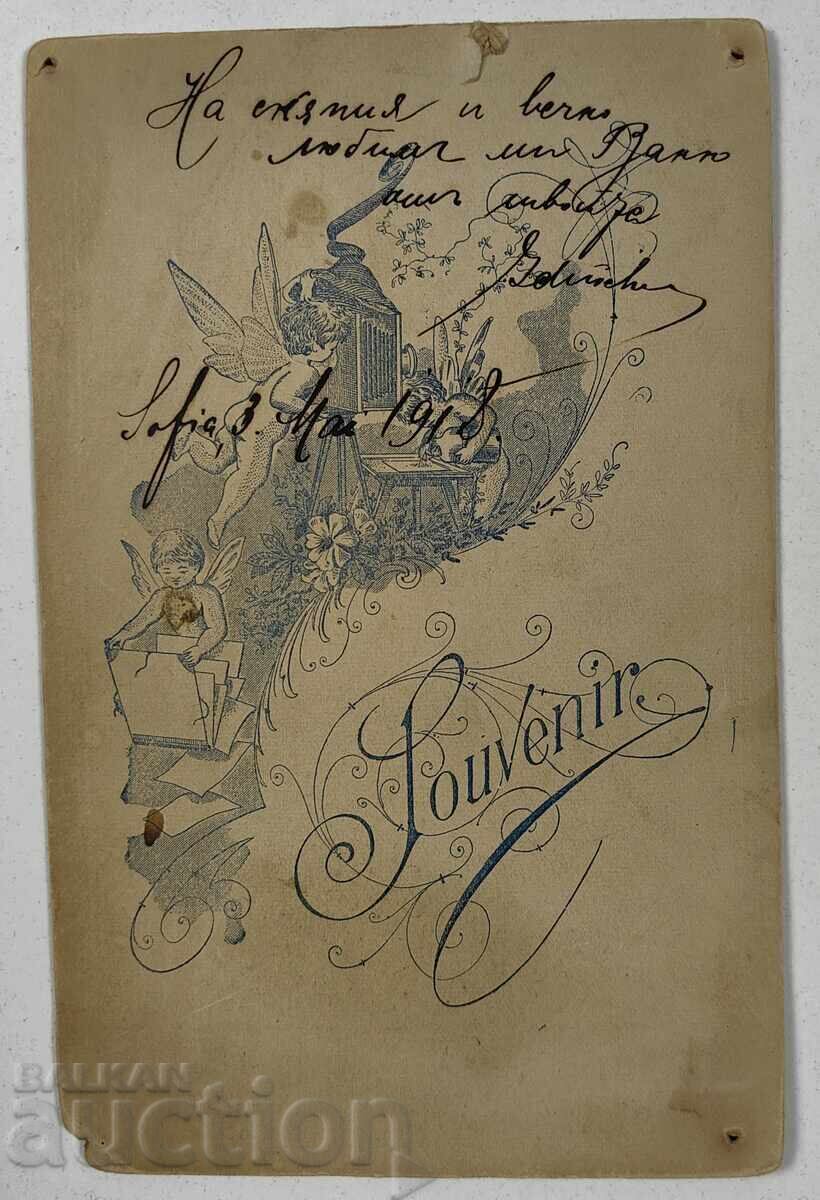 На скѫпия и вечно
любиащ ми Ваню
отъ
Sofia, 3. Mai 1918
Souvenir
BALKAN
auction